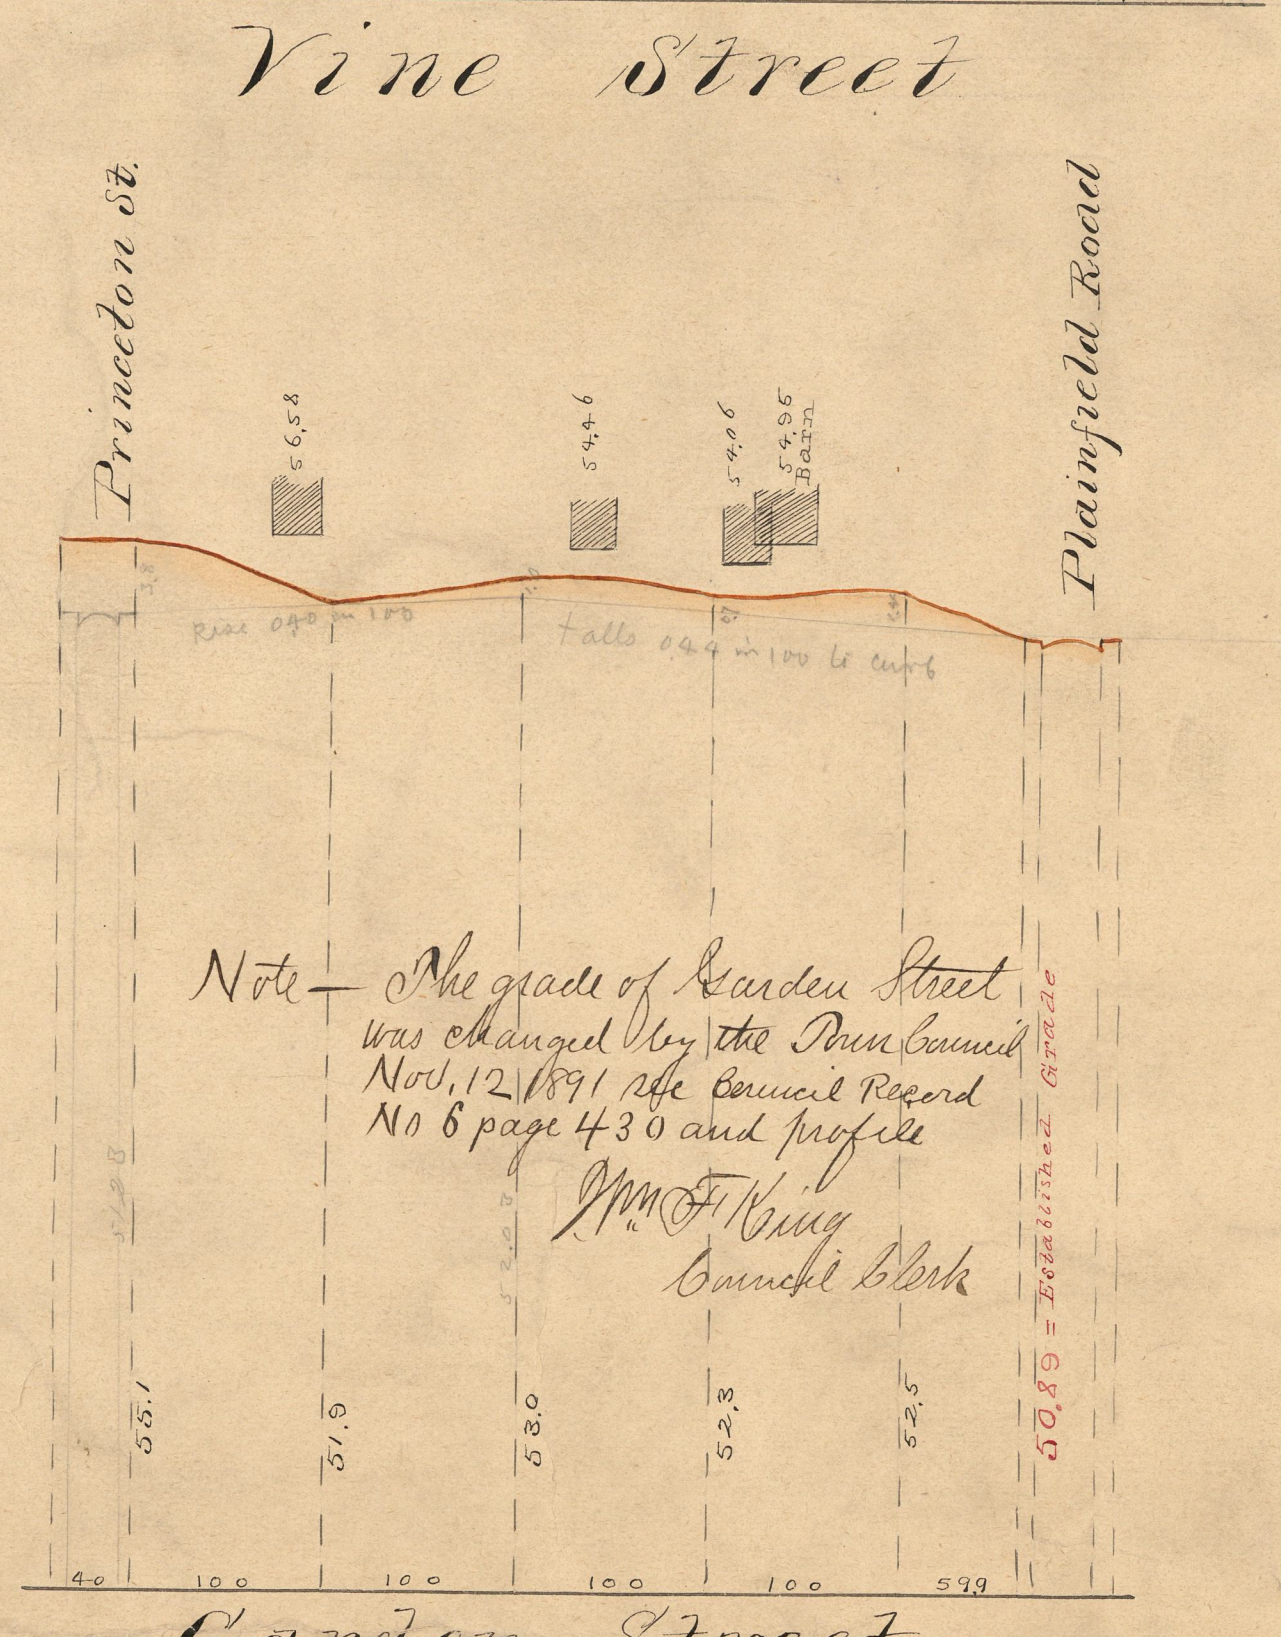 Vine Street
Princeton St.
Plainfield Road
56.58
54.46
54.06
54.95
Barn
3.8
1.0
0.7
Rise 0.40 in 100
Falls 0.44 in 100 to curb
Note — The grade of Garden Street
was changed by the Town Council
Nov. 12 1891 see Council Record
No 6 page 430 and profile
Wm F King
Council Clerk
51.28
52.08
55.1
51.9
53.0
52.3
52.5
50.89 = Established Grade
40 100 100 100 100 59.9
Garden Street